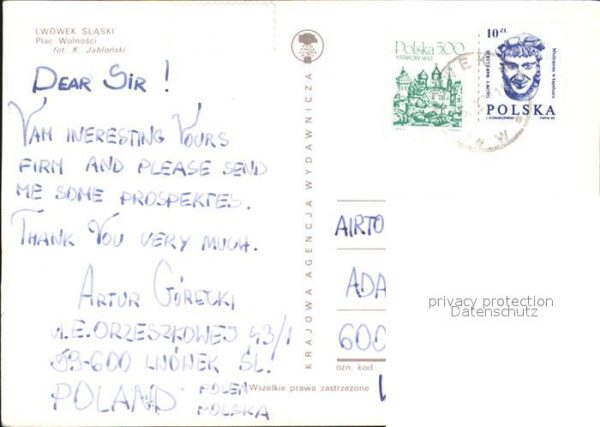 LWÓWEK ŚLĄSKI
Plac Wolności
fot. K. Jabłoński
DEAR SIR !
YAM INERESTING YOURS
FIRM AND PLEASE SEND
ME SOME PROSPEKTES.
THANK YOU VERY MUCH.
ARTUR GÓRECKI
UL. E. ORZESZKOWEJ 43/1
59-600 LWÓWEK ŚL.
POLAND POLEN
POLSKA
KRAJOWA AGENCJA WYDAWNICZA
Polska 5.00
KRAKÓW 1493
10 ZŁ
POLSKA
AIRTO
ADA
600
ozn. kod
Wszelkie prawa zastrzeżone
privacy protection
Datenschutz